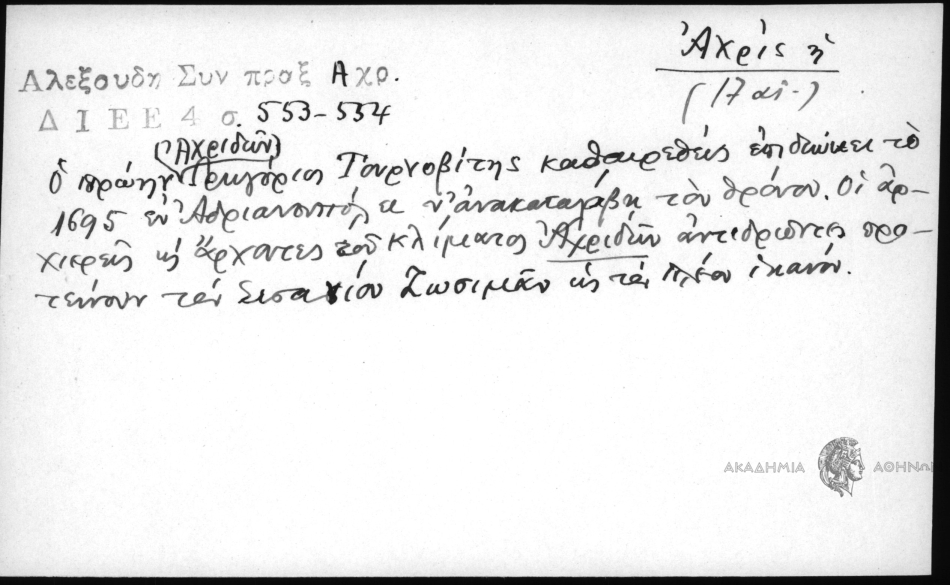 Ἀχρὶς ἡ
(17 αἰ.)
Αλεξουδη Συν πραξ Αχρ.
Δ Ι Ε Ε 4 σ. 553-554
(Ἀχριδῶν)
Ὁ πρώην Γρηγόριος Τουρνοβίτης καθαιρεθείς ἐπιδιώκει τὸ
1695 ἐν Ἀδριανουπόλει ν' ἀνακαταλάβη τὸν θρόνον. Οἱ ἀρ-
χιερεῖς κ ἄρχοντες τοῦ κλίματος Ἀχριδῶν ἀντιδρῶντες προ-
τείνουν τὸν Σισανίου Ζωσιμᾶν ὡς τὸν πλέον ἱκανόν.
ΑΚΑΔΗΜΙΑ ΑΘΗΝΩΝ